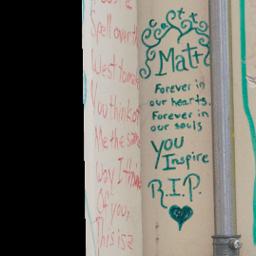 Spell over th
West to
You think of
Me the same
way I th
Of you,
This is a
Matt
Forever in
our hearts.
Forever in
our souls
you
Inspire
R.I.P.